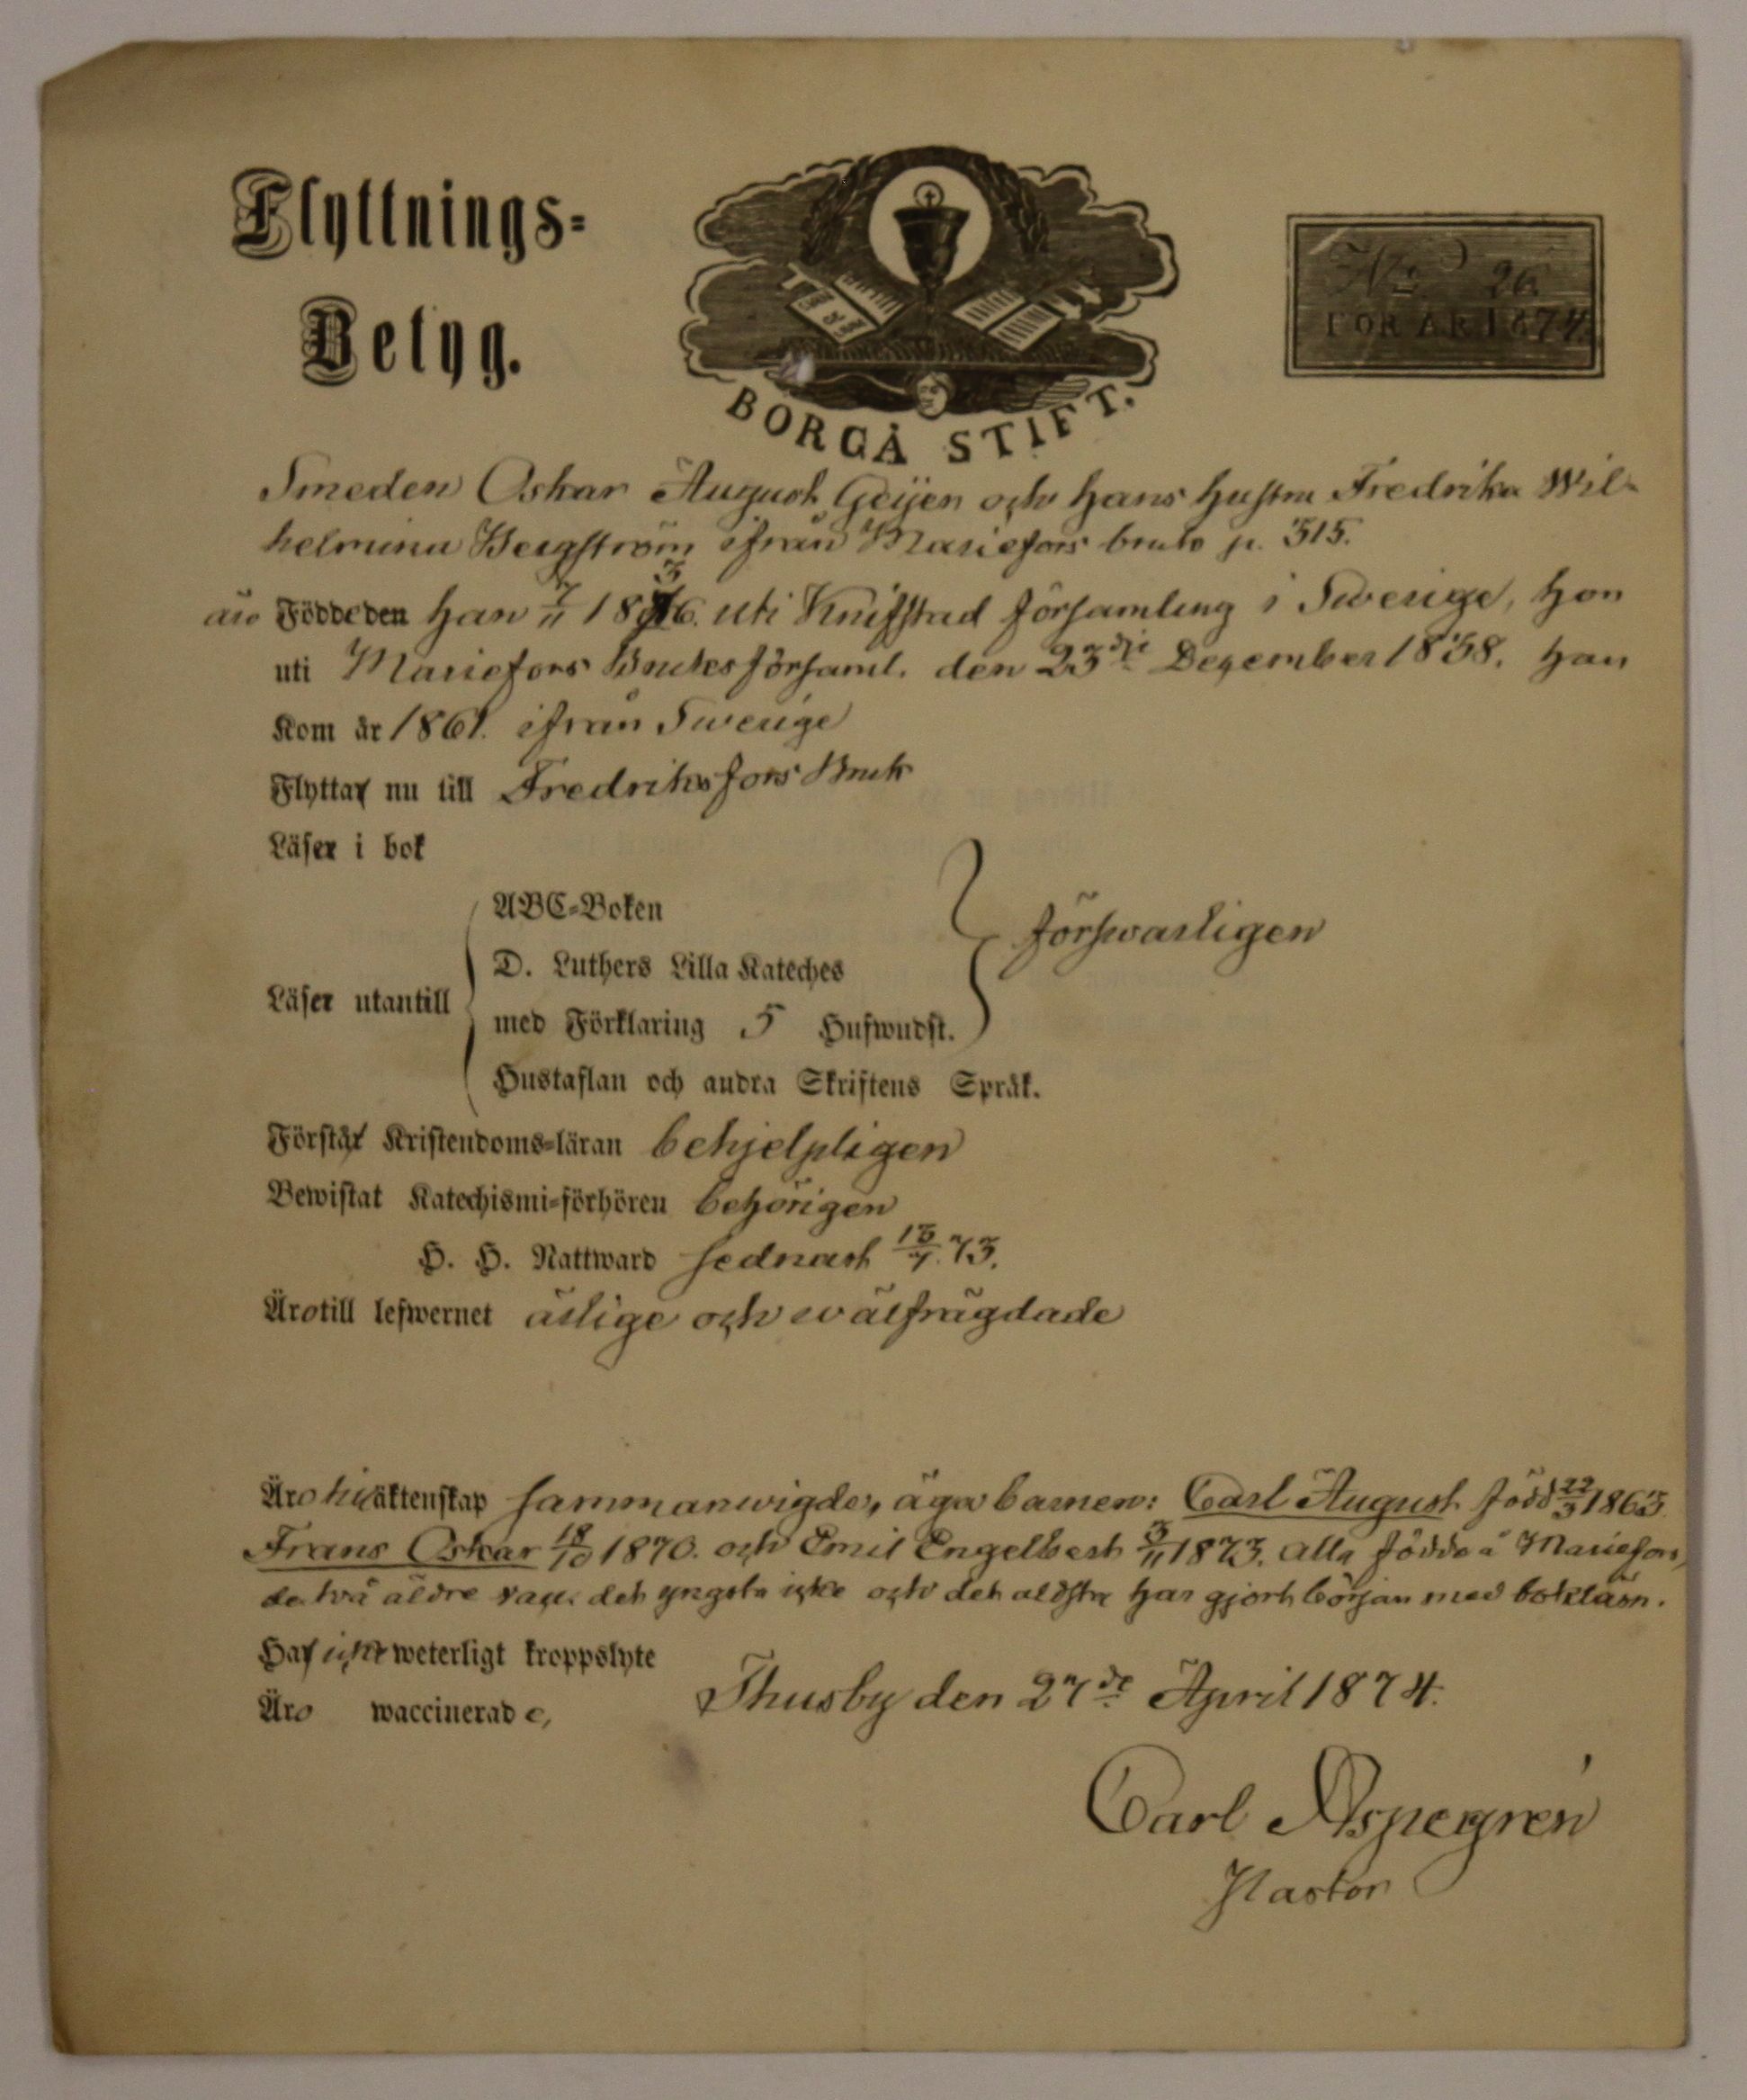 Flyttnings=
Betyg.
BORGÅ STIFT.
No 26.
FÖR ÅR 1874.
Smeden Oskar August Geijer och hans hustru Fredrika Wil-
helmina Bergström ifrån Mariefors bruk p. 515.
äro Födde den han 7/11 1836. uti Knifstad församling i Swerige, hon
uti Mariefors Bruksförsaml. den 23dje Dezember 1838. han
Kom år 1861. ifrån Swerige
Flytta nu till Fredriksfors Bruk
Läser i bok
ABC=Boken
D. Luthers Lilla Kateches
försvarligen
Läser utantill
med Förklaring 5 Hufwudst.
Hustaflan och andra Skriftens Språk.
Förstår Kristendoms=läran behjelpligen
Bewistat Katechismi=förhören behörigen
H. H. Nattward sednast 13/7. 73.
Äro till lefwernet ärlige och wälfrägdade
Äro i äktenskap sammanwigde, äga barnen: Carl August född 22/3 1863.
Frans Oskar 18/10 1870. och Emil Engelbert 3/11 1873. alla födde å Mariefors,
de två äldre vacc. det yngsta icke och det äldsta har gjort början med bokläsn.
Ha icke weterligt kroppslyte
Thusby den 27de April 1874.
Äro waccinerade,
Carl Aspegrén
Pastor